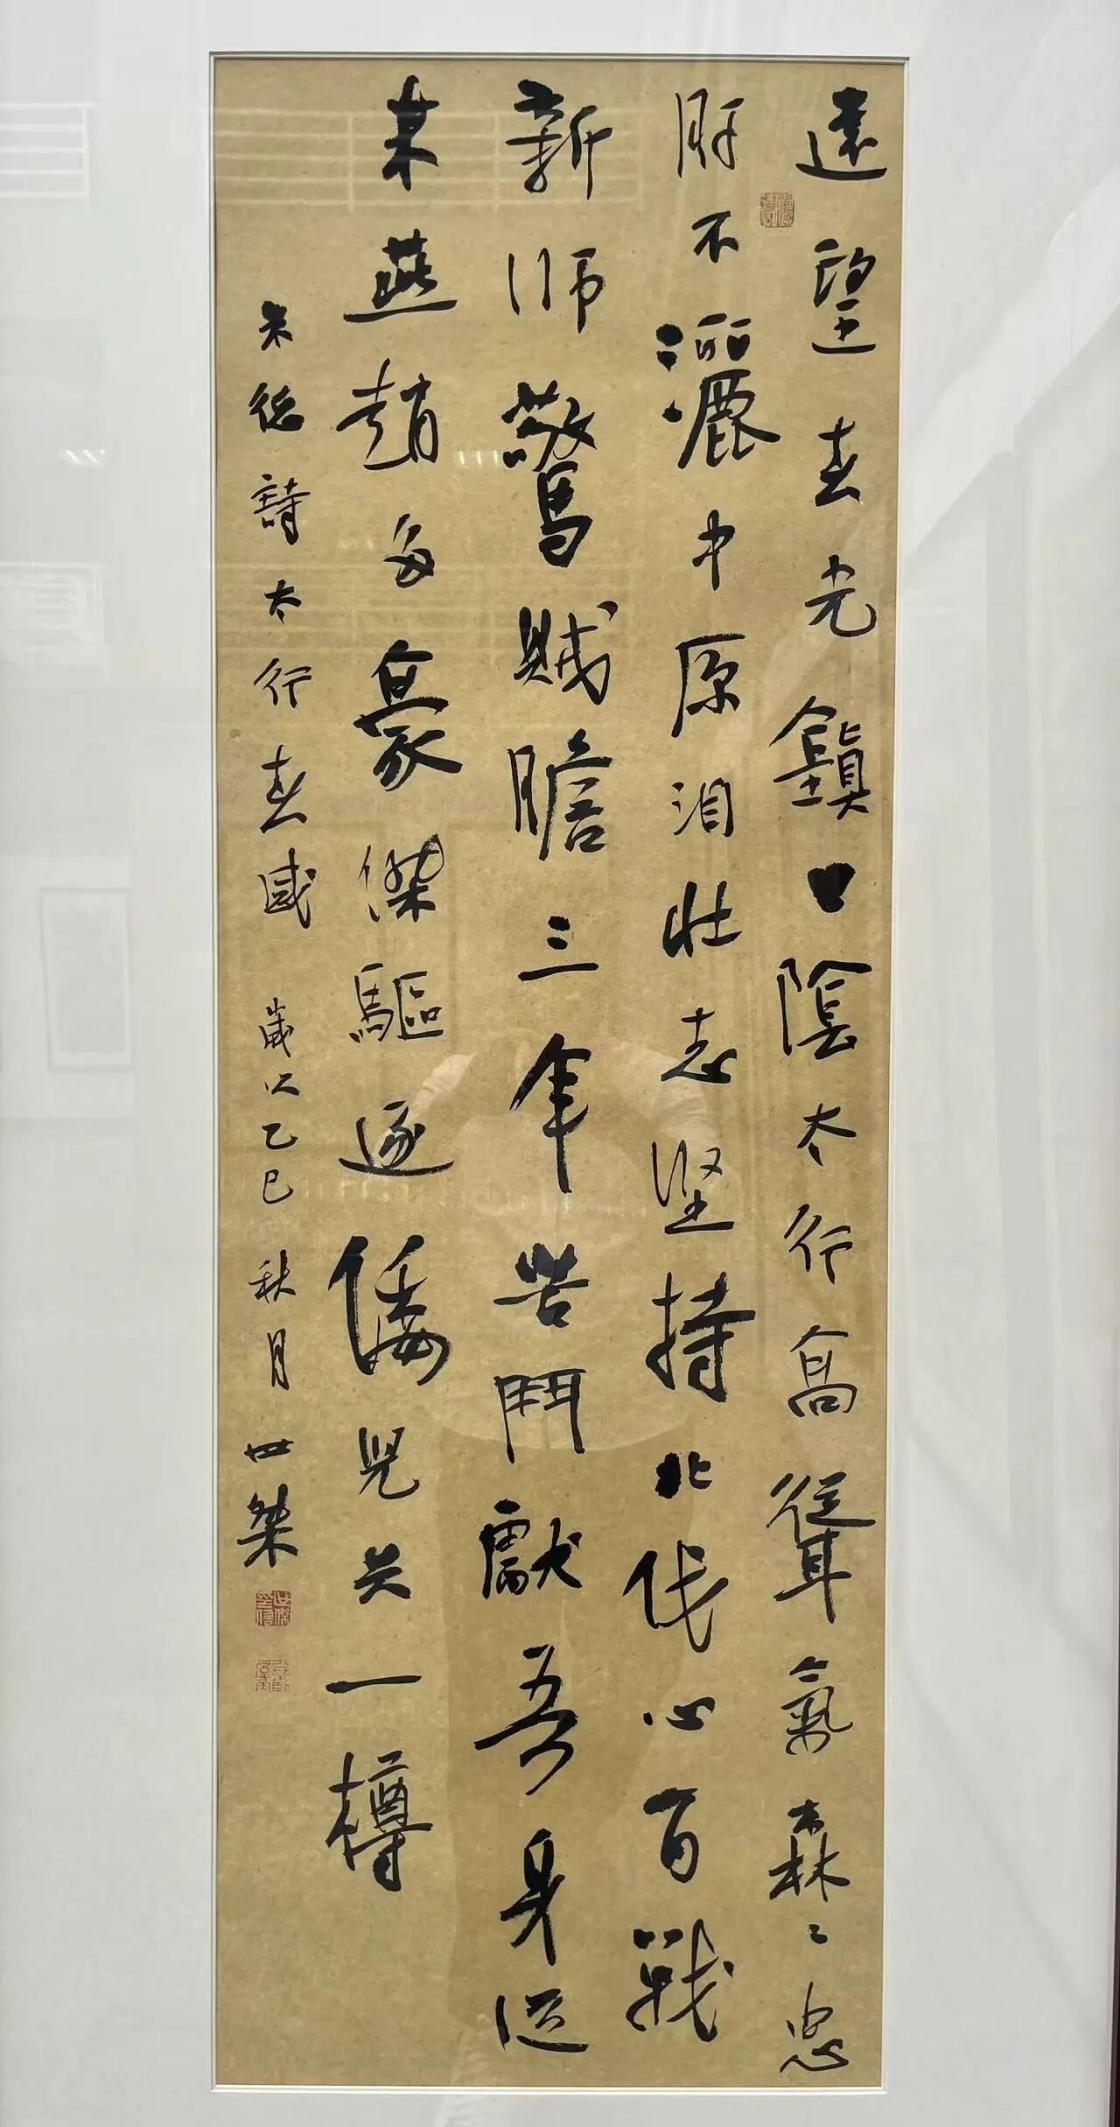 遠望春光鎮日陰太行高聳氣森〻忠
肝不灑中原泪壮志坚持北伐心百戰
新师驚賊膽三年苦鬥獻吾身從
来燕趙多豪傑驅逐倭兒共一樽
朱德詩太行春感 歲次乙巳秋月 世桀